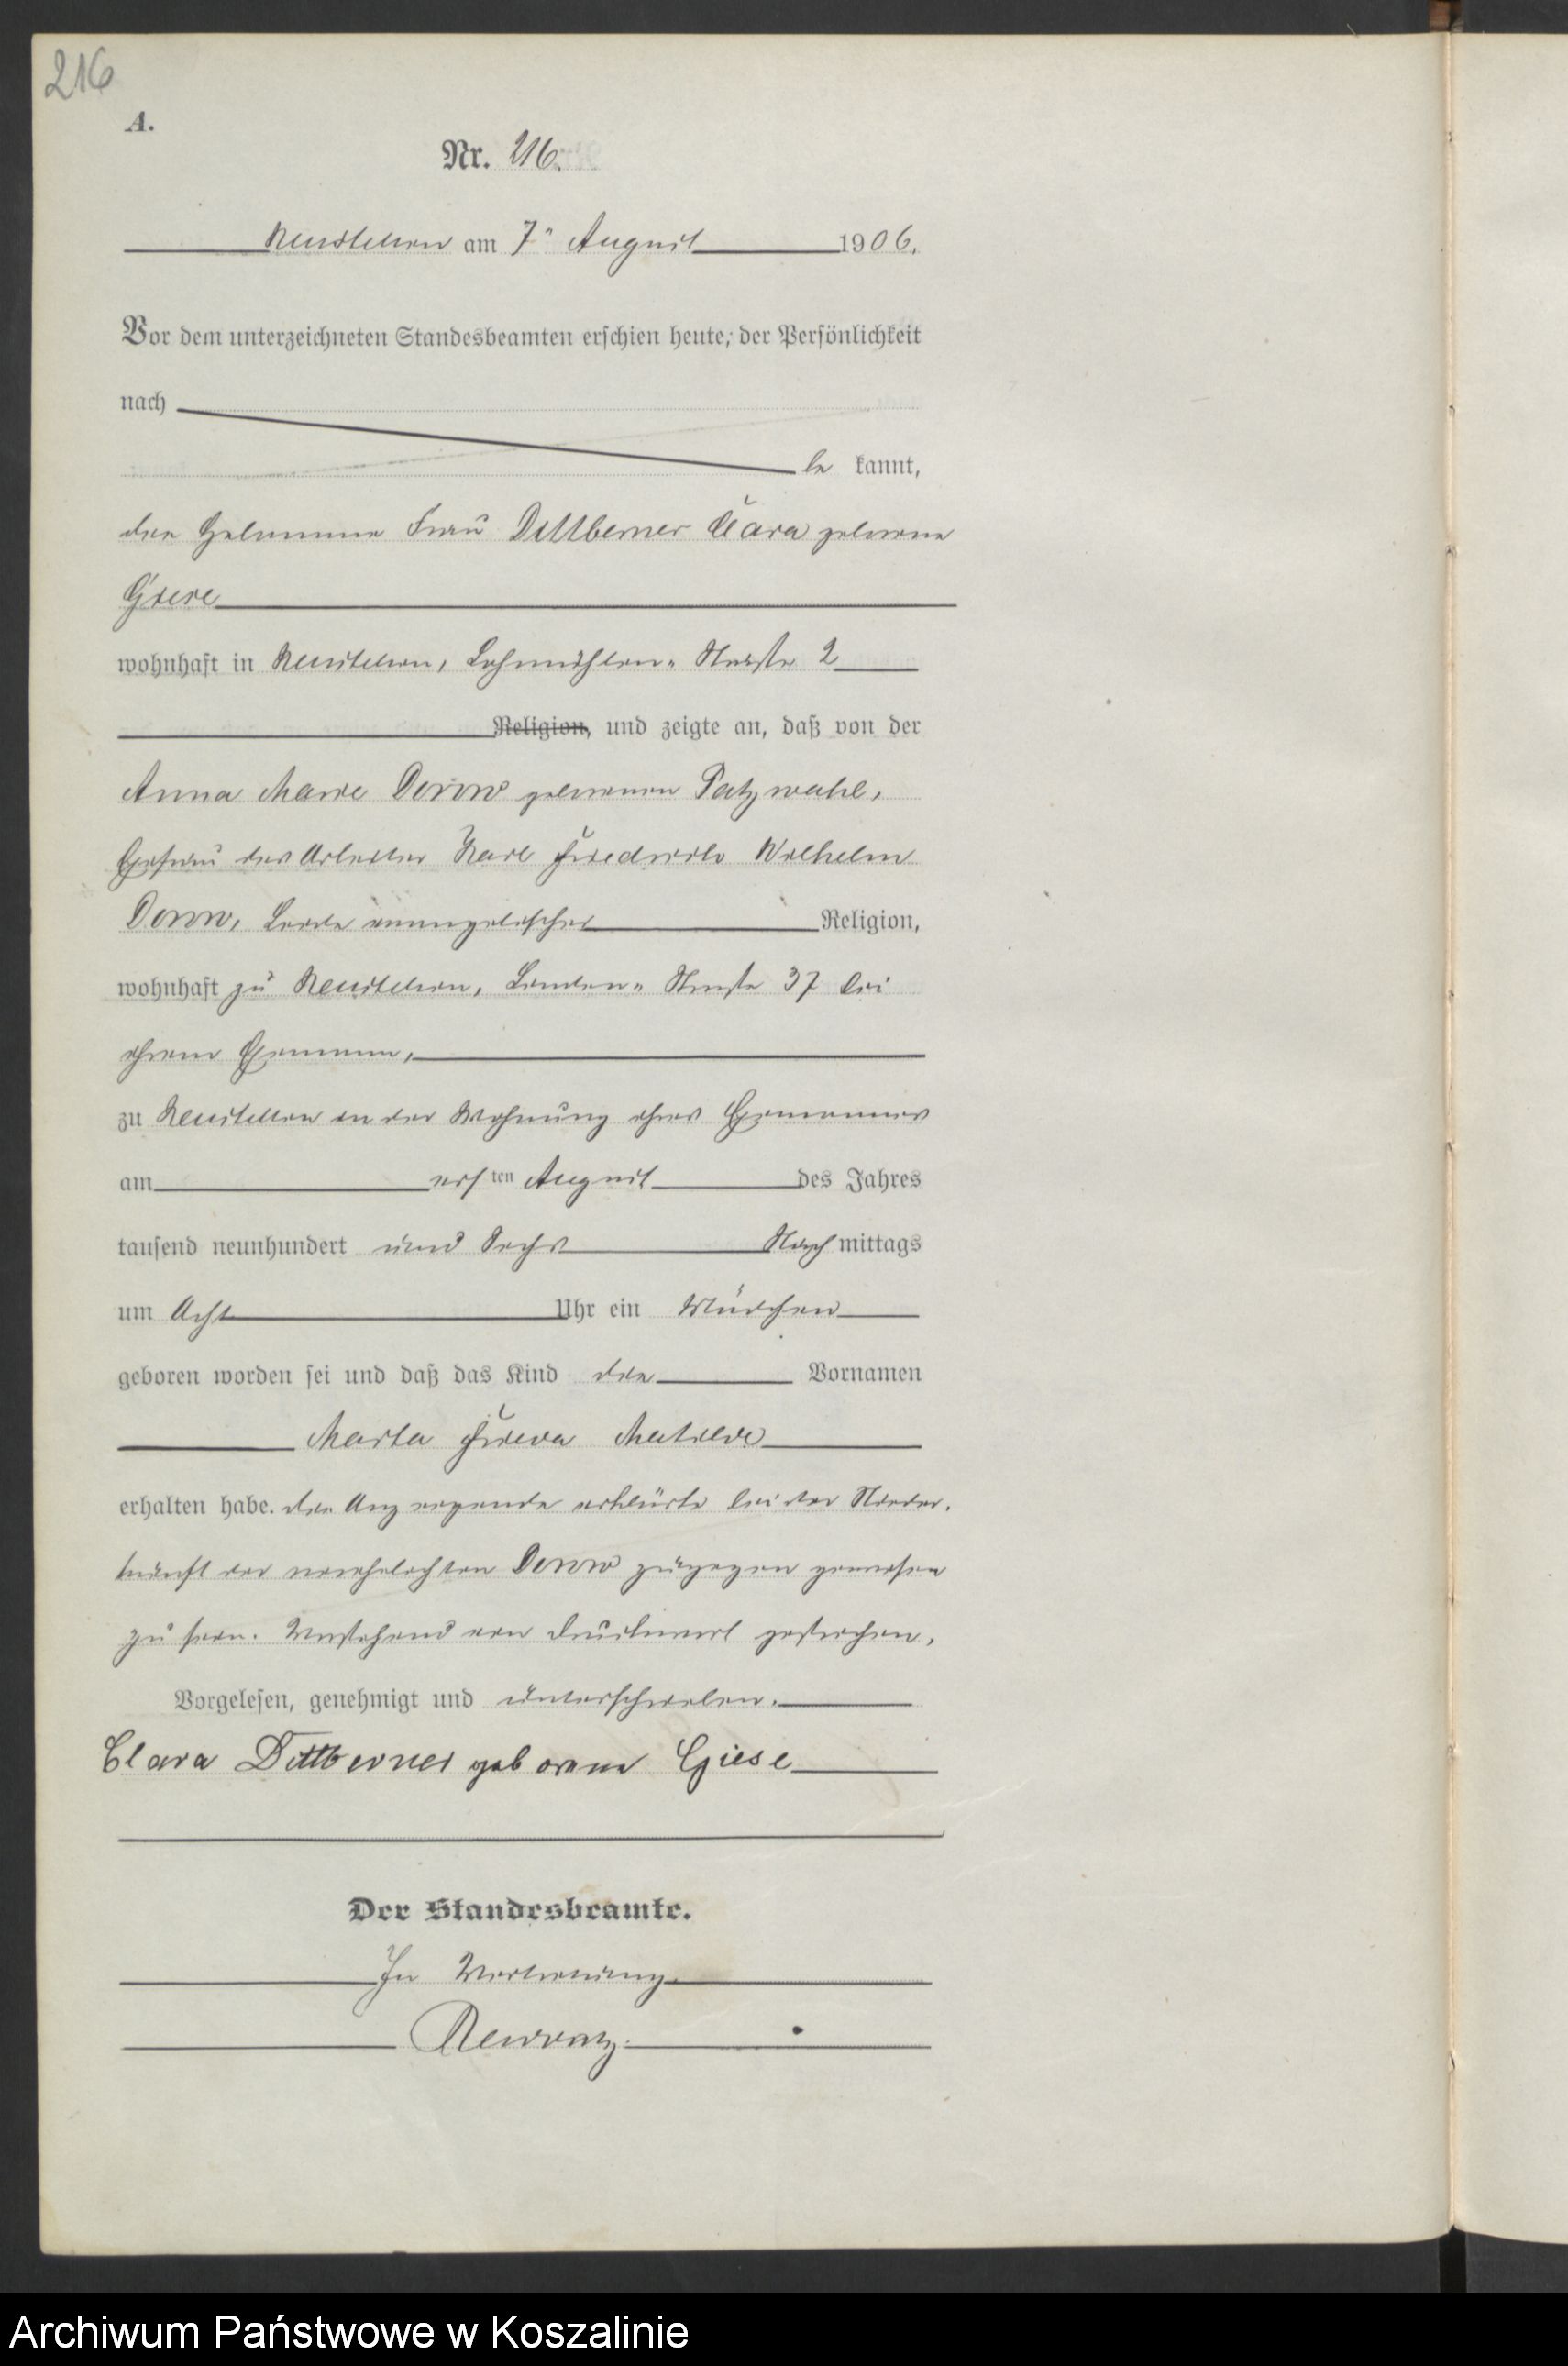 216
A.
Nr. 216.
Neustettin am 7ⁿ August 1906.
Vor dem unterzeichneten Standesbeamten erschien heute, der Persönlichkeit
nach
be kannt,
die Hebamme Frau Dittberner Clara geborene
Giese
wohnhaft in Neustettin, Lohmühlen-Straße 2
Religion, und zeigte an, daß von der
Anna Marie Dorow geborenen Patzwahl,
Ehefrau des Arbeiter Karl Friedrich Wilhelm
Dorow, beide evangelischer Religion,
wohnhaft zu Neustettin, Linden-Straße 37 bei
ihrem Ehemann,
zu Neustettin in der Wohnung ihres Ehemannes
am ersten August des Jahres
tausend neunhundert und sechs Nach mittags
um Acht Uhr ein Mädchen
geboren worden sei und daß das Kind die Vornamen
Marta Frieda
erhalten habe. die Anzeigende erklärte bei der Nieder-
kunft der verehelichten Dorow zugegen gewesen
zu sein. Vorstehend ein Druckwort gestrichen.
Vorgelesen, genehmigt und unterschrieben.
Clara Dittberner geborene Giese
Der Standesbeamte.
In Vertretung
Archiwum Państwowe w Koszalinie